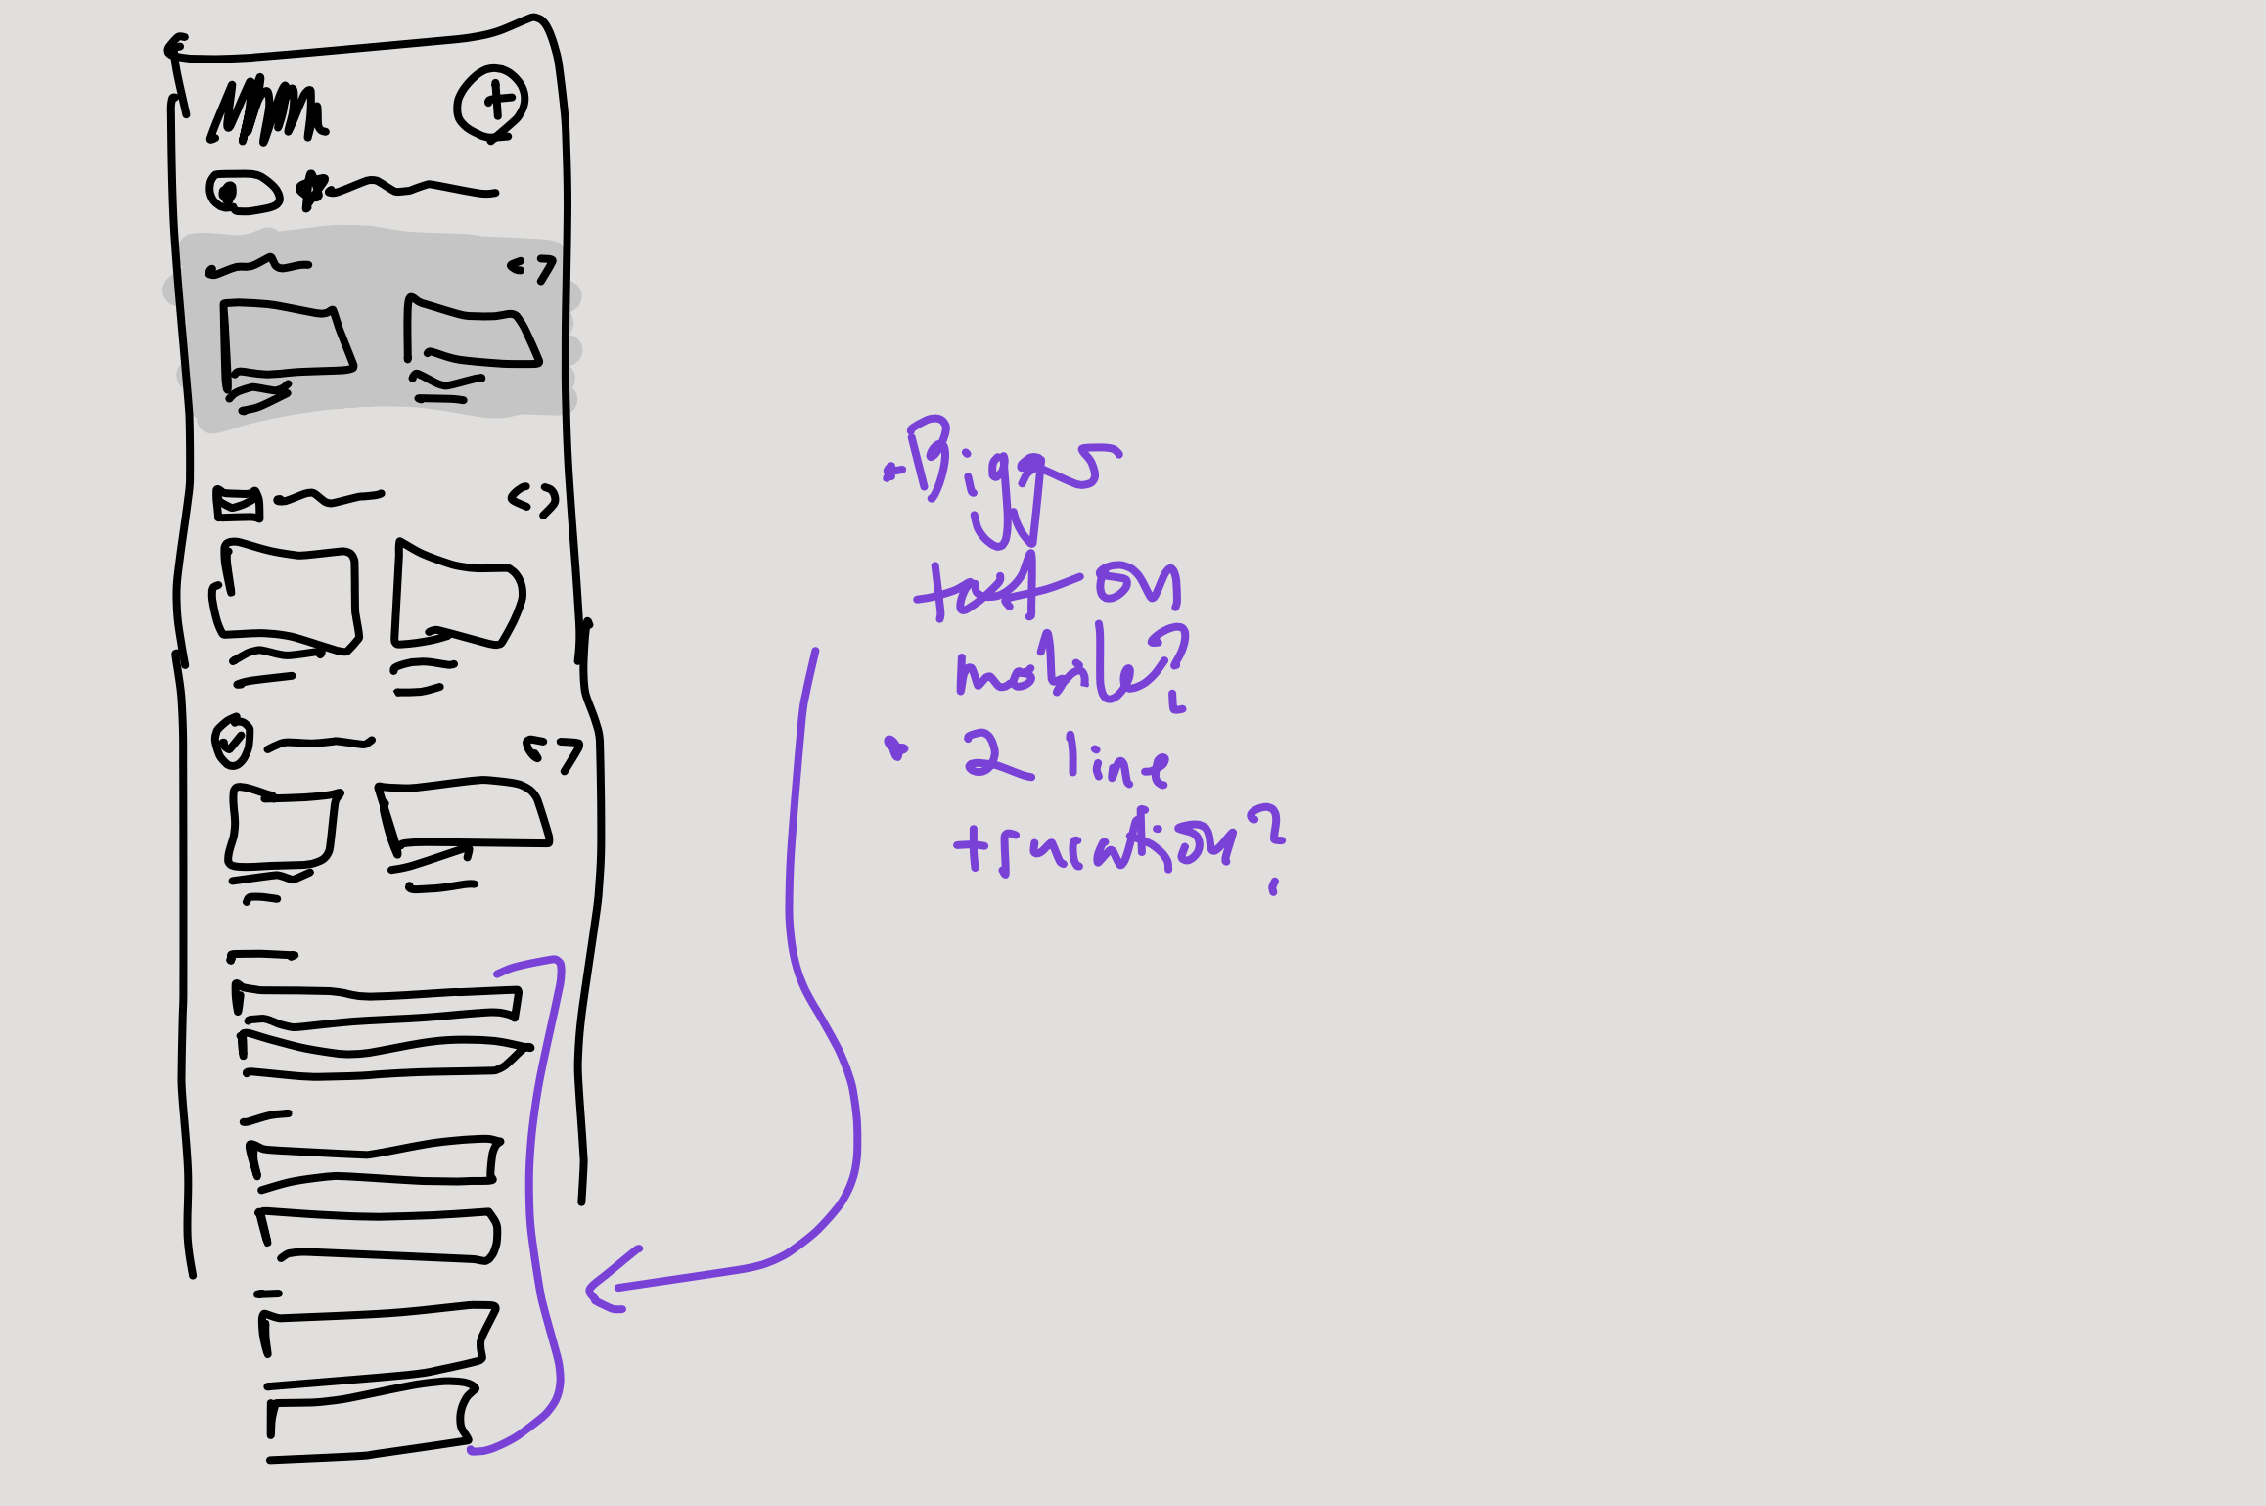 • Bigger
text on
mobile?
• 2 line
truncation?